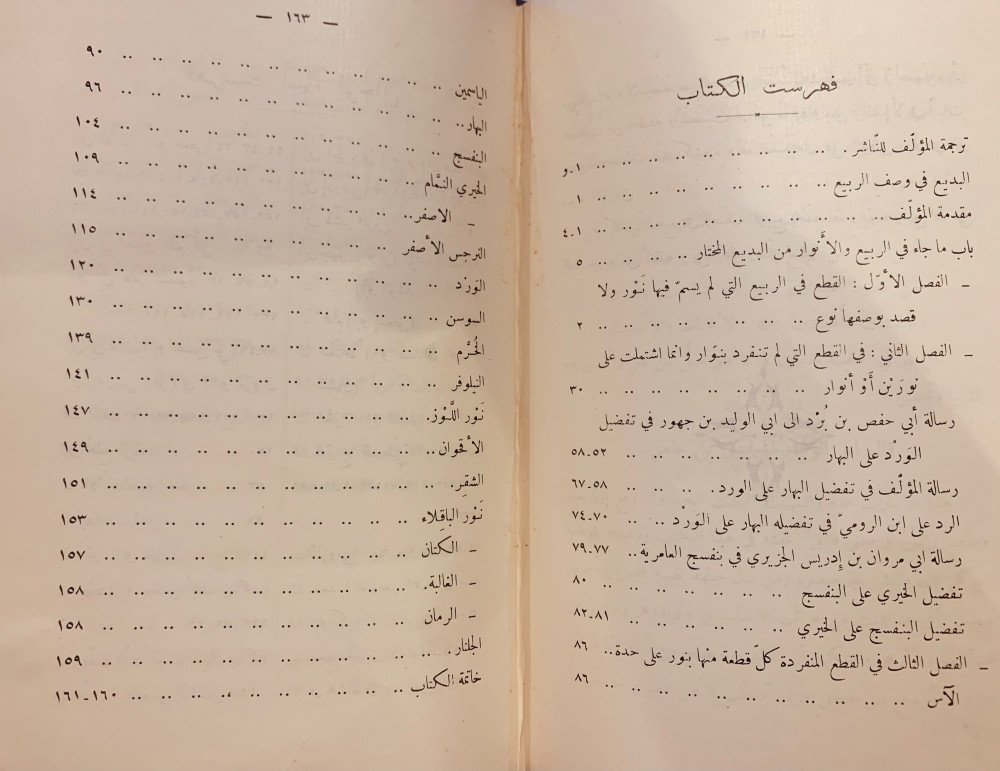 فهرست الكتاب
ترجمة المؤلّف للنّاشر . .. .. .. .. .. .. .. .. ١-و
البديع في وصف الربيع .. .. .. .. .. .. .. .. ١
مقدمة المؤلّف .. .. .. .. .. .. .. .. .. ١-٤
باب ما جاء في الربيع والأَنوار من البديع المختار .. .. .. .. ٥
ـ الفصل الأوّل : القطع في الربيع التي لم يسمّ فيها نَوْر ولا
قصد بوصفها نوع .. .. .. .. .. .. .. .. ٢
ـ الفصل الثاني : في القطع التي لم تنفرد بنوّار وانما اشتملت على
نورَيْن أَوْ أنوار .. .. .. .. .. .. .. ٣٠
رسالة أبي حفص بن بُرْد الى ابي الوليد بن جهور في تفضيل
الوَرْد على البهار .. .. .. .. .. .. .. ٥٢-٥٨
رسالة المؤلّف في تفضيل البهار على الورد . .. .. .. ٥٨-٦٧
الرد على ابن الروميّ في تفضيله البهار على الوَرْد .. .. ٧٠-٧٤
رسالة ابي مروان بن إدريس الجزيري في بنفسج العامرية .. ٧٧-٧٩
تفضيل الخيري على البنفسج .. .. .. .. .. .. ٨٠
تفضيل البنفسج على الخيري .. .. .. .. .. .. ٨١-٨٢
ـ الفصل الثالث في القطع المنفردة كلّ قطعة منها بنور على حدة .. ٨٦
الآس .. .. .. .. .. .. .. .. .. .. ٨٦
— ١٦٣ —
الياسمين .. .. .. .. .. .. .. .. .. .. .. ٩٠
البهار .. .. .. .. .. .. .. .. .. .. .. ٩٦
البنفسج .. .. .. .. .. .. .. .. .. .. .. ١٠٤
الخيري النمَّام .. .. .. .. .. .. .. .. .. .. ١٠٩
ـ الاصفر .. .. .. .. .. .. .. .. .. .. ١١٤
النرجس الأصفر .. .. .. .. .. .. .. .. .. .. ١١٥
الوَرْد .. .. .. .. .. .. .. .. .. .. .. ١٢٠
السوسن .. .. .. .. .. .. .. .. .. .. .. ١٣٠
الخُرَّم .. .. .. .. .. .. .. .. .. .. .. ١٣٩
النيلوفر .. .. .. .. .. .. .. .. .. .. .. ١٤١
نَوْر اللَّوْز . .. .. .. .. .. .. .. .. .. .. ١٤٧
الأقحوان .. .. .. .. .. .. .. .. .. .. .. ١٤٩
الشقِر . .. .. .. .. .. .. .. .. .. .. ١٥١
نَوْر الباقِلاء .. .. .. .. .. .. .. .. .. .. ١٥٣
ـ الكتان .. .. .. .. .. .. .. .. .. .. ١٥٧
ـ الغالبة . .. .. .. .. .. .. .. .. .. .. ١٥٨
ـ الرمان .. .. .. .. .. .. .. .. .. .. ١٥٨
الجلنار . .. .. .. .. .. .. .. .. .. .. ١٥٩
خاتمة الكتاب .. .. .. .. .. .. .. .. .. .. ١٦٠-١٦١